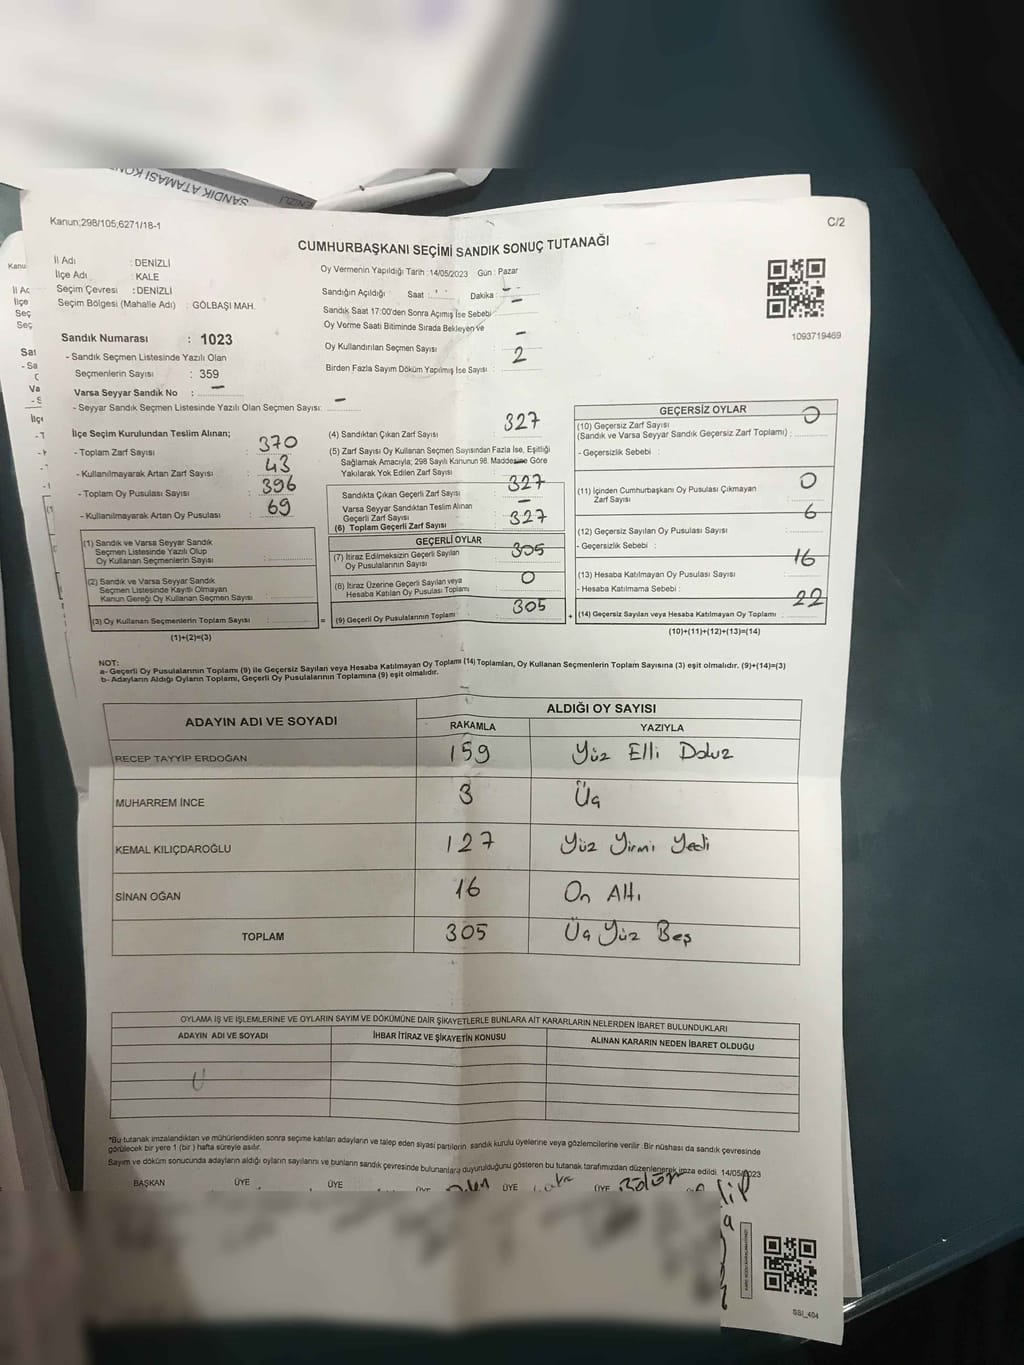 SANDIK ATAMASI KON
DENİZLİ
Kanun;298/105;6271/18-1
C/2
CUMHURBAŞKANI SEÇİMİ SANDIK SONUÇ TUTANAĞI
İl Adı : DENİZLİ
İlçe Adı : KALE
Seçim Çevresi : DENİZLİ
Seçim Bölgesi (Mahalle Adı) : GÖLBAŞI MAH.
Oy Vermenin Yapıldığı Tarih :14/05/2023 Gün : Pazar
Sandığın Açıldığı Saat : Dakika :
Sandık Saat 17:00'den Sonra Açımış İse Sebebi
Oy Vorme Saati Bitiminde Sırada Bekleyen ve
Oy Kullandırılan Seçmen Sayısı : –
Birden Fazla Sayım Döküm Yapılmış İse Sayısı : 2
1093719469
Sandık Numarası : 1023
- Sandık Seçmen Listesinde Yazılı Olan
Seçmenlerin Sayısı : 359
Varsa Seyyar Sandık No : –
- Seyyar Sandık Seçmen Listesinde Yazılı Olan Seçmen Sayısı: –
İlçe Seçim Kurulundan Teslim Alınan;
- Toplam Zarf Sayısı : 370
- Kullanılmayarak Artan Zarf Sayısı : 43
- Toplam Oy Pusulası Sayısı : 396
- Kullanılmayarak Artan Oy Pusulası : 69
(1) Sandık ve Varsa Seyyar Sandık
Seçmen Listesinde Yazılı Olup
Oy Kullanan Seçmenlerin Sayısı :
(2) Sandık ve Varsa Seyyar Sandık
Seçmen Listesinde Kayıtlı Olmayan
Kanun Gereği Oy Kullanan Seçmen Sayısı :
(3) Oy Kullanan Seçmenlerin Toplam Sayısı :
(1)+(2)=(3)
=
(4) Sandıktan Çıkan Zarf Sayısı : 327
(5) Zarf Sayısı Oy Kullanan Seçmen Sayısından Fazla İse, Eşitliği
Sağlamak Amacıyla; 298 Sayılı Kanunun 98. Maddesine Göre
Yakılarak Yok Edilen Zarf Sayısı :
Sandıkta Çıkan Geçerli Zarf Sayısı : 327
Varsa Seyyar Sandıktan Teslim Alınan
Geçerli Zarf Sayısı : –
(6) Toplam Geçerli Zarf Sayısı : 327
GEÇERLİ OYLAR
(7) İtiraz Edilmeksizin Geçerli Sayılan
Oy Pusulalarının Sayısı : 305
(8) İtiraz Üzerine Geçerli Sayılan veya
Hesaba Katılan Oy Pusulası Toplamı : 0
(9) Geçerli Oy Pusulalarının Toplamı : 305
+
GEÇERSİZ OYLAR
(10) Geçersiz Zarf Sayısı
(Sandık ve Varsa Seyyar Sandık Geçersiz Zarf Toplamı) : 0
- Geçersizlik Sebebi :
(11) İçinden Cumhurbaşkanı Oy Pusulası Çıkmayan
Zarf Sayısı : 0
(12) Geçersiz Sayılan Oy Pusulası Sayısı : 6
- Geçersizlik Sebebi :
(13) Hesaba Katılmayan Oy Pusulası Sayısı : 16
- Hesaba Katılmama Sebebi :
(14) Geçersiz Sayılan veya Hesaba Katılmayan Oy Toplamı : 22
(10)+(11)+(12)+(13)=(14)
NOT:
a- Geçerli Oy Pusulalarının Toplamı (9) ile Geçersiz Sayılan veya Hesaba Katılmayan Oy Toplamı (14) Toplamları, Oy Kullanan Seçmenlerin Toplam Sayısına (3) eşit olmalıdır. (9)+(14)=(3)
b- Adayların Aldığı Oyların Toplamı, Geçerli Oy Pusulalarının Toplamına (9) eşit olmalıdır.
ADAYIN ADI VE SOYADI
ALDIĞI OY SAYISI
RAKAMLA YAZIYLA
RECEP TAYYİP ERDOĞAN 159 Yüz Elli Dokuz
MUHARREM İNCE 3 Üç
KEMAL KILIÇDAROĞLU 127 Yüz Yirmi Yedi
SİNAN OĞAN 16 On Altı
TOPLAM 305 Üç Yüz Beş
OYLAMA İŞ VE İŞLEMLERİNE VE OYLARIN SAYIM VE DÖKÜMÜNE DAİR ŞİKAYETLERLE BUNLARA AİT KARARLARIN NELERDEN İBARET BULUNDUKLARI
ADAYIN ADI VE SOYADI İHBAR İTİRAZ VE ŞİKAYETİN KONUSU ALINAN KARARIN NEDEN İBARET OLDUĞU
*Bu tutanak imzalandıktan ve mühürlendikten sonra seçime katılan adayların ve talep eden siyasi partilerin sandık kurulu üyelerine veya gözlemcilerine verilir. Bir nüshası da sandık çevresinde
görülecek bir yere 1 (bir) hafta süreyle asılır.
Sayım ve döküm sonucunda adayların aldığı oyların sayılarını ve bunların sandık çevresinde bulunanlara duyurulduğunu gösteren bu tutanak tarafımızdan düzenlenerek imza edildi. 14/05/2023
BAŞKAN ÜYE ÜYE ÜYE ÜYE ÜYE
SSI_404